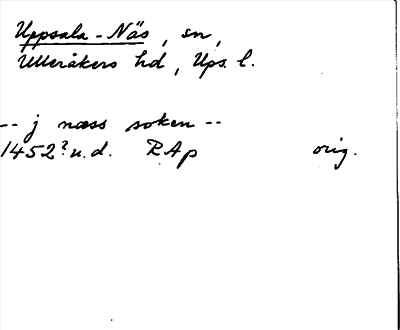 Uppsala-Näs, sn,
Ulleråkers hd, Ups. l.
-- j næss soken --
1452? u.d. RAp orig.